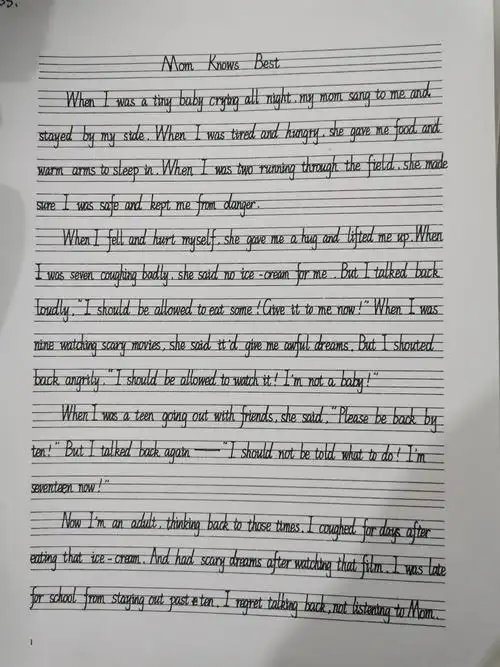 Mom Knows Best
When I was a tiny baby crying all night, my mom sang to me and
stayed by my side. When I was tired and hungry, she gave me food and
warm arms to sleep in. When I was two running through the field, she made
sure I was safe and kept me from danger.
When I fell and hurt myself, she gave me a hug and lifted me up. When
I was seven coughing badly, she said no ice-cream for me. But I talked back
loudly, "I should be allowed to eat some! Give it to me now!" When I was
nine watching scary movies, she said it'd give me awful dreams. But I shouted
back angrily, "I should be allowed to watch it! I'm not a baby!"
When I was a teen going out with friends, she said, "Please be back by
ten!" But I talked back again —— "I should not be told what to do! I'm
seventeen now!"
Now I'm an adult, thinking back to those times. I coughed for days after
eating that ice-cream. And had scary dreams after watching that film. I was late
for school from staying out past ten. I regret talking back, not listening to Mom.